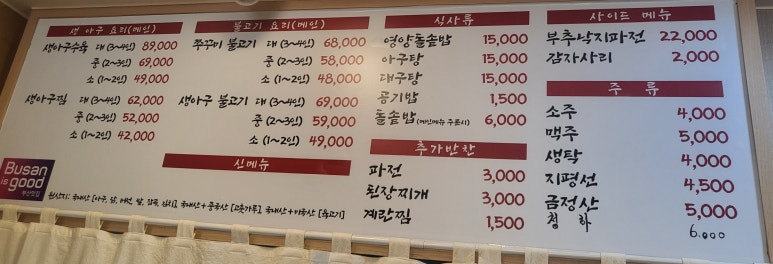 생 아구 요리(메인)
생아구수육 대 (3~4인) 89,000
중 (2~3인) 69,000
소 (1~2인) 49,000
생아구찜 대 (3~4인) 62,000
중 (2~3인) 52,000
소 (1~2인) 42,000
불고기 요리(메인)
쭈꾸미 불고기 대 (3~4인) 68,000
중 (2~3인) 58,000
소 (1~2인) 48,000
생아구 불고기 대 (3~4인) 69,000
중 (2~3인) 59,000
소 (1~2인) 49,000
신메뉴
식사류
영양돌솥밥 15,000
아구탕 15,000
대구탕 15,000
공기밥 1,500
돌솥밥(메인메뉴 주문시) 6,000
추가반찬
파전 3,000
된장찌개 3,000
계란찜 1,500
사이드 메뉴
부추낙지파전 22,000
감자사리 2,000
주 류
소주 4,000
맥주 5,000
생탁 4,000
지평선 4,500
금정산 5,000
청 하 6.000
Busan
is good
부산맛집
원산지: 국내산 [아구, 쌀, 김치] 국내산+중국산 [고춧가루] 국내산+미국산 [불고기]